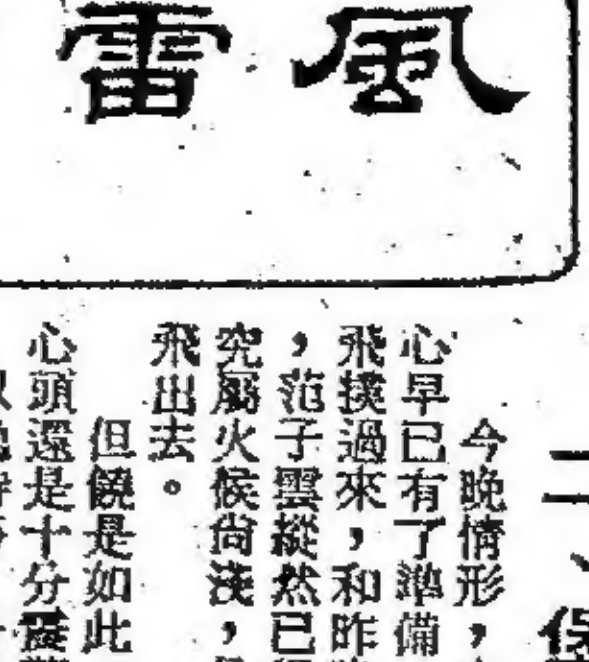 風雷
二、保
今晚情形，
心早已有了準備
飛撲過來，和昨
，范子雲縱然已
究屬火候尚淺，
飛出去。
但饒是如此
心頭還是十分震